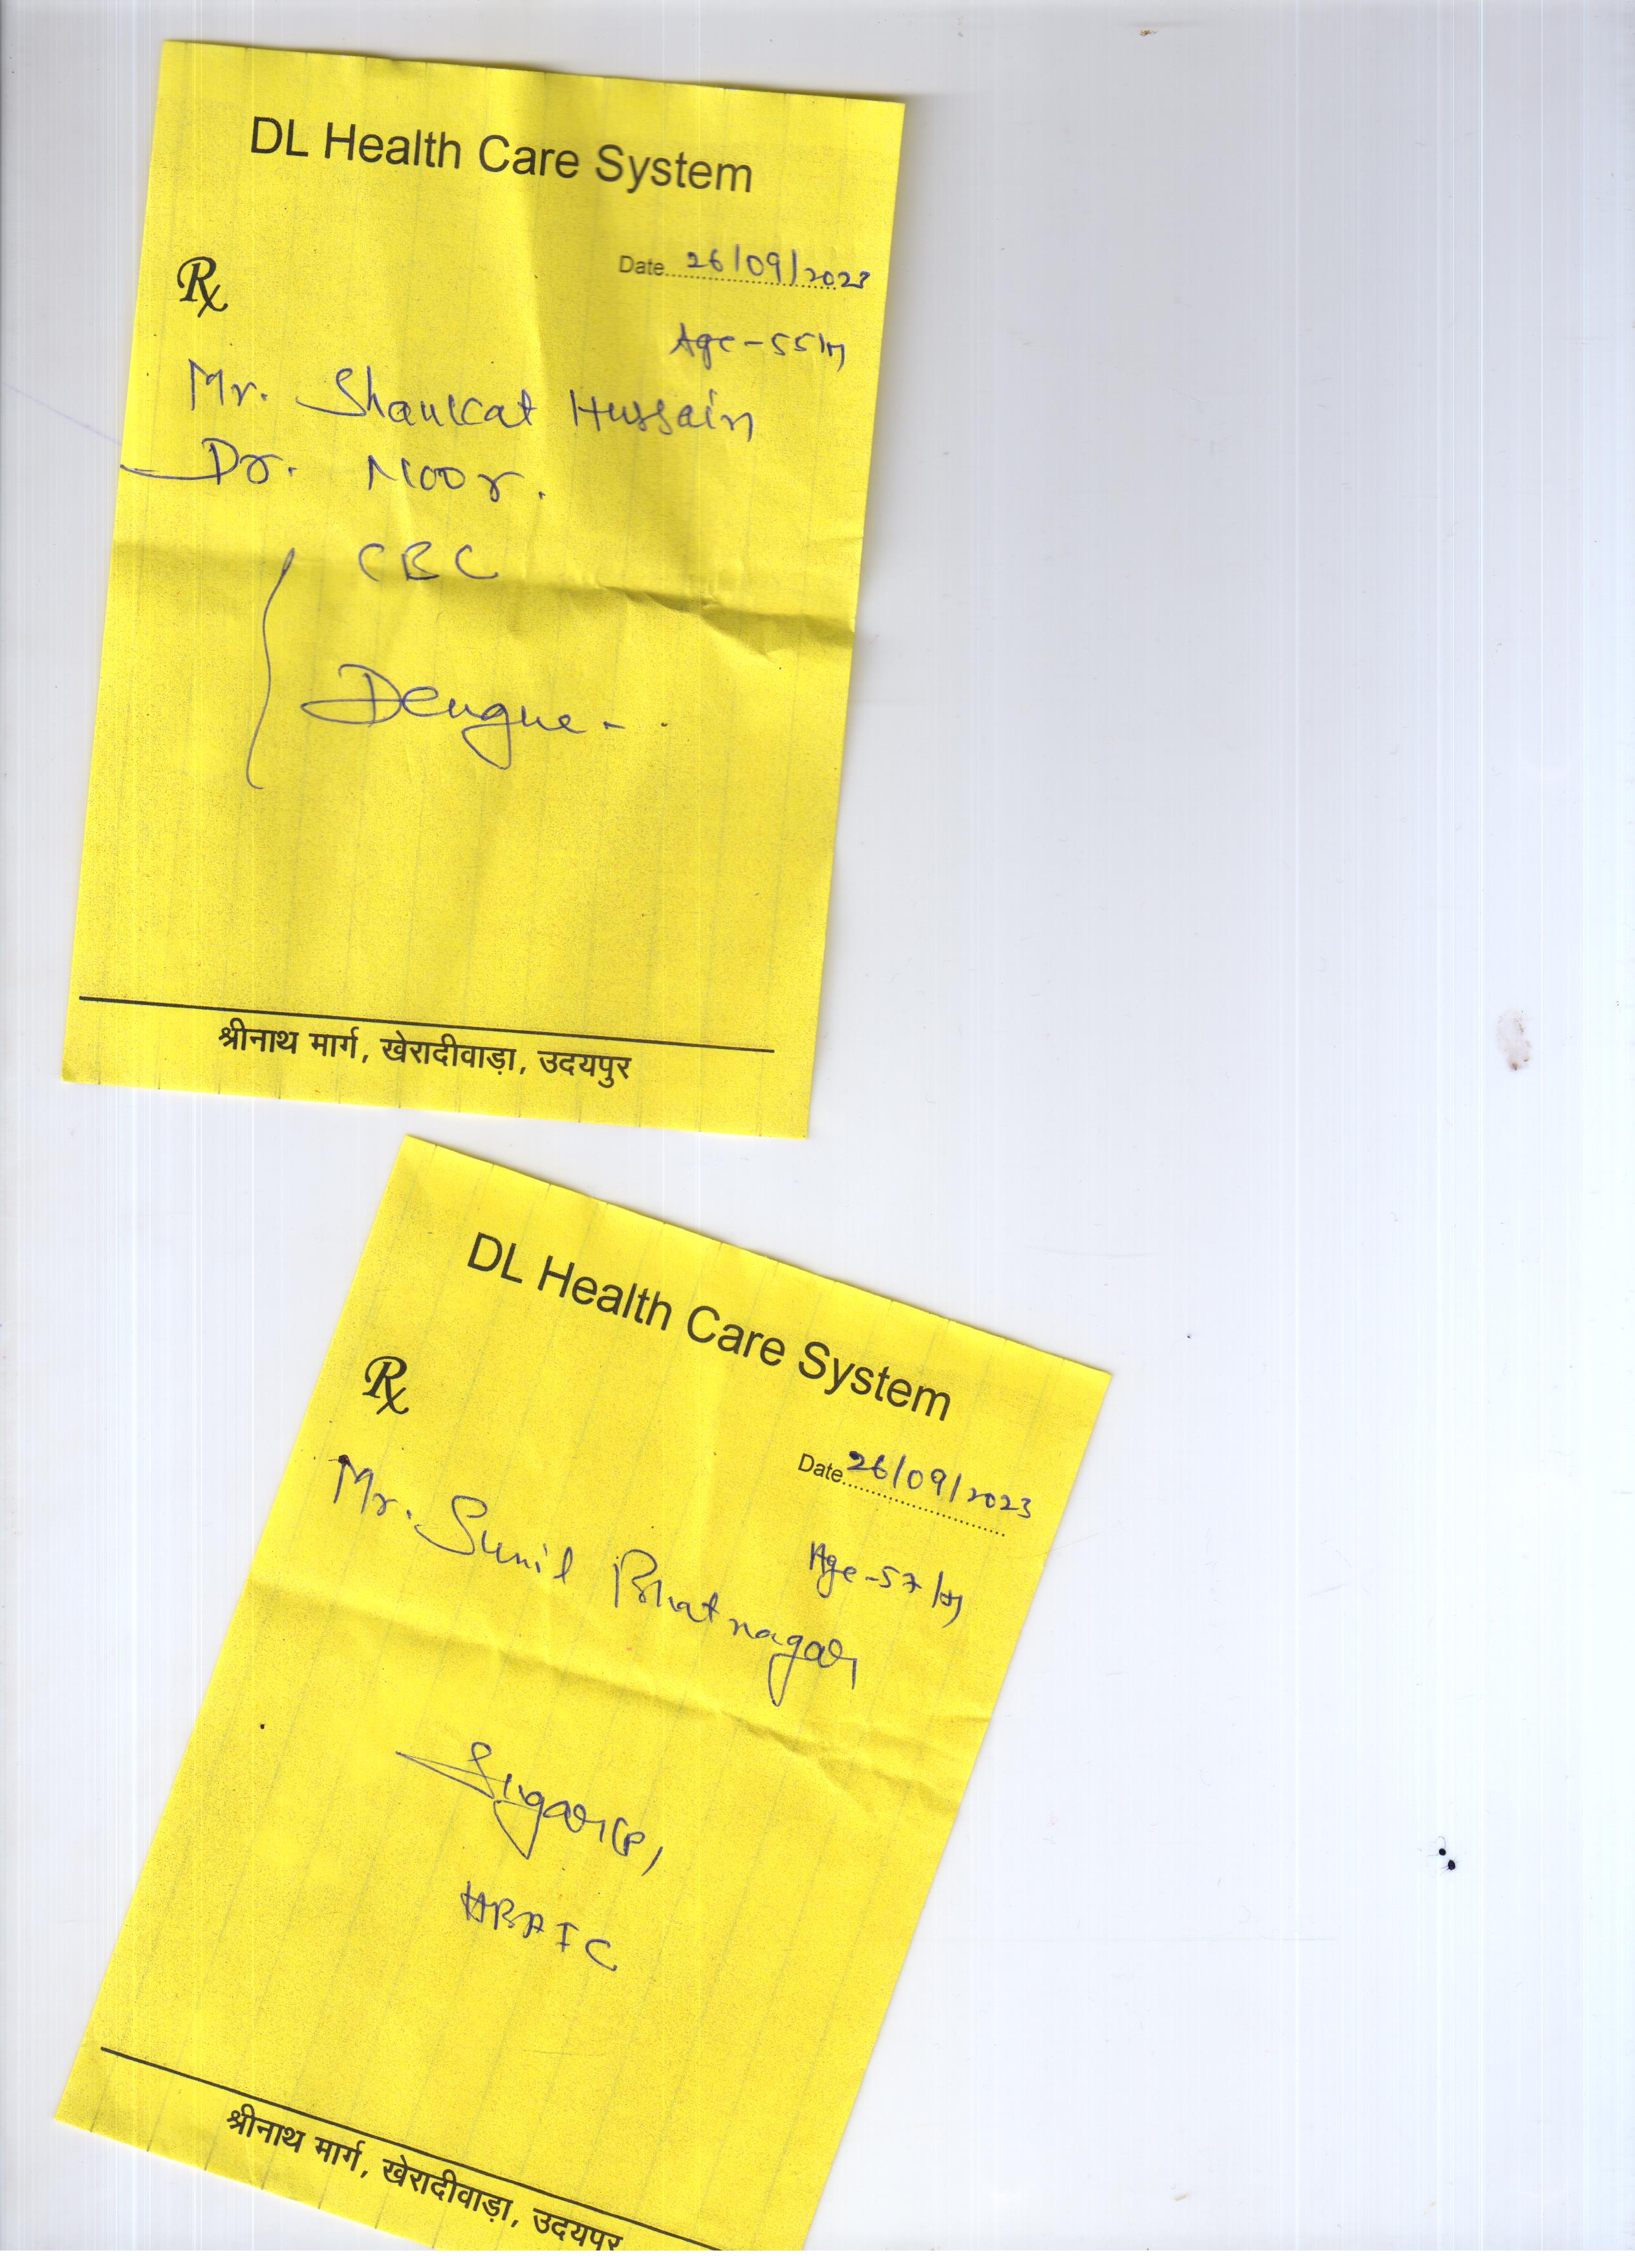 DL Health Care System
Date 26/09/2023
Rx
Age-55/M
Mr. Shaukat Hussain
Dr. Noor.
CBC
Dengue-
श्रीनाथ मार्ग, खेरादीवाड़ा, उदयपुर
DL Health Care System
Rx
Date 26/09/2023
Age-57/M
Mr. Sunil Bhatnagar
Sugar(R)
HBAIC
श्रीनाथ मार्ग, खेरादीवाड़ा, उदयपुर